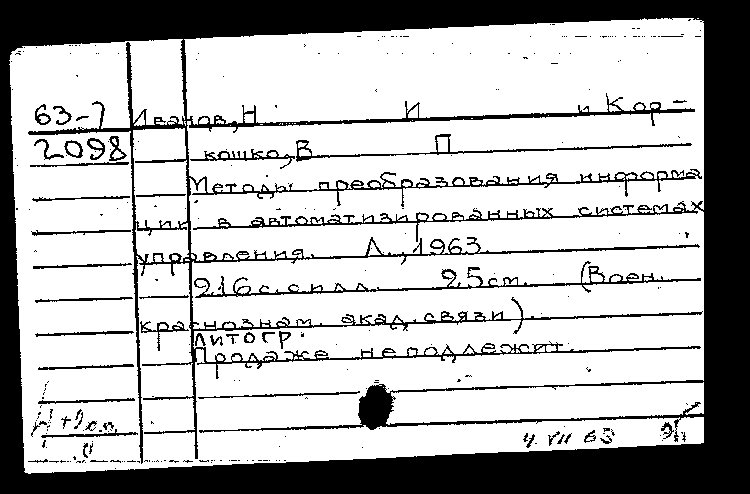 63-7 Иванов, Н И и Кор-
2098 кошко, В П
Методы преобразования информа
ции в автоматизированных системах
управления. Л., 1963.
216 с. с илл. 25 см. (Воен.
краснознам. акад. связи).
Литогр.
Продаже не подлежит.
4 VII 63